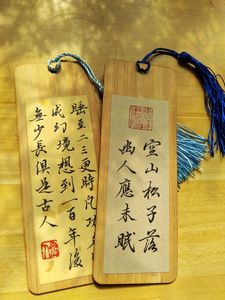 空山松子落
幽人應未眠
睡至二三更時凡功
成幻境想到一百年後
無少長俱是古人